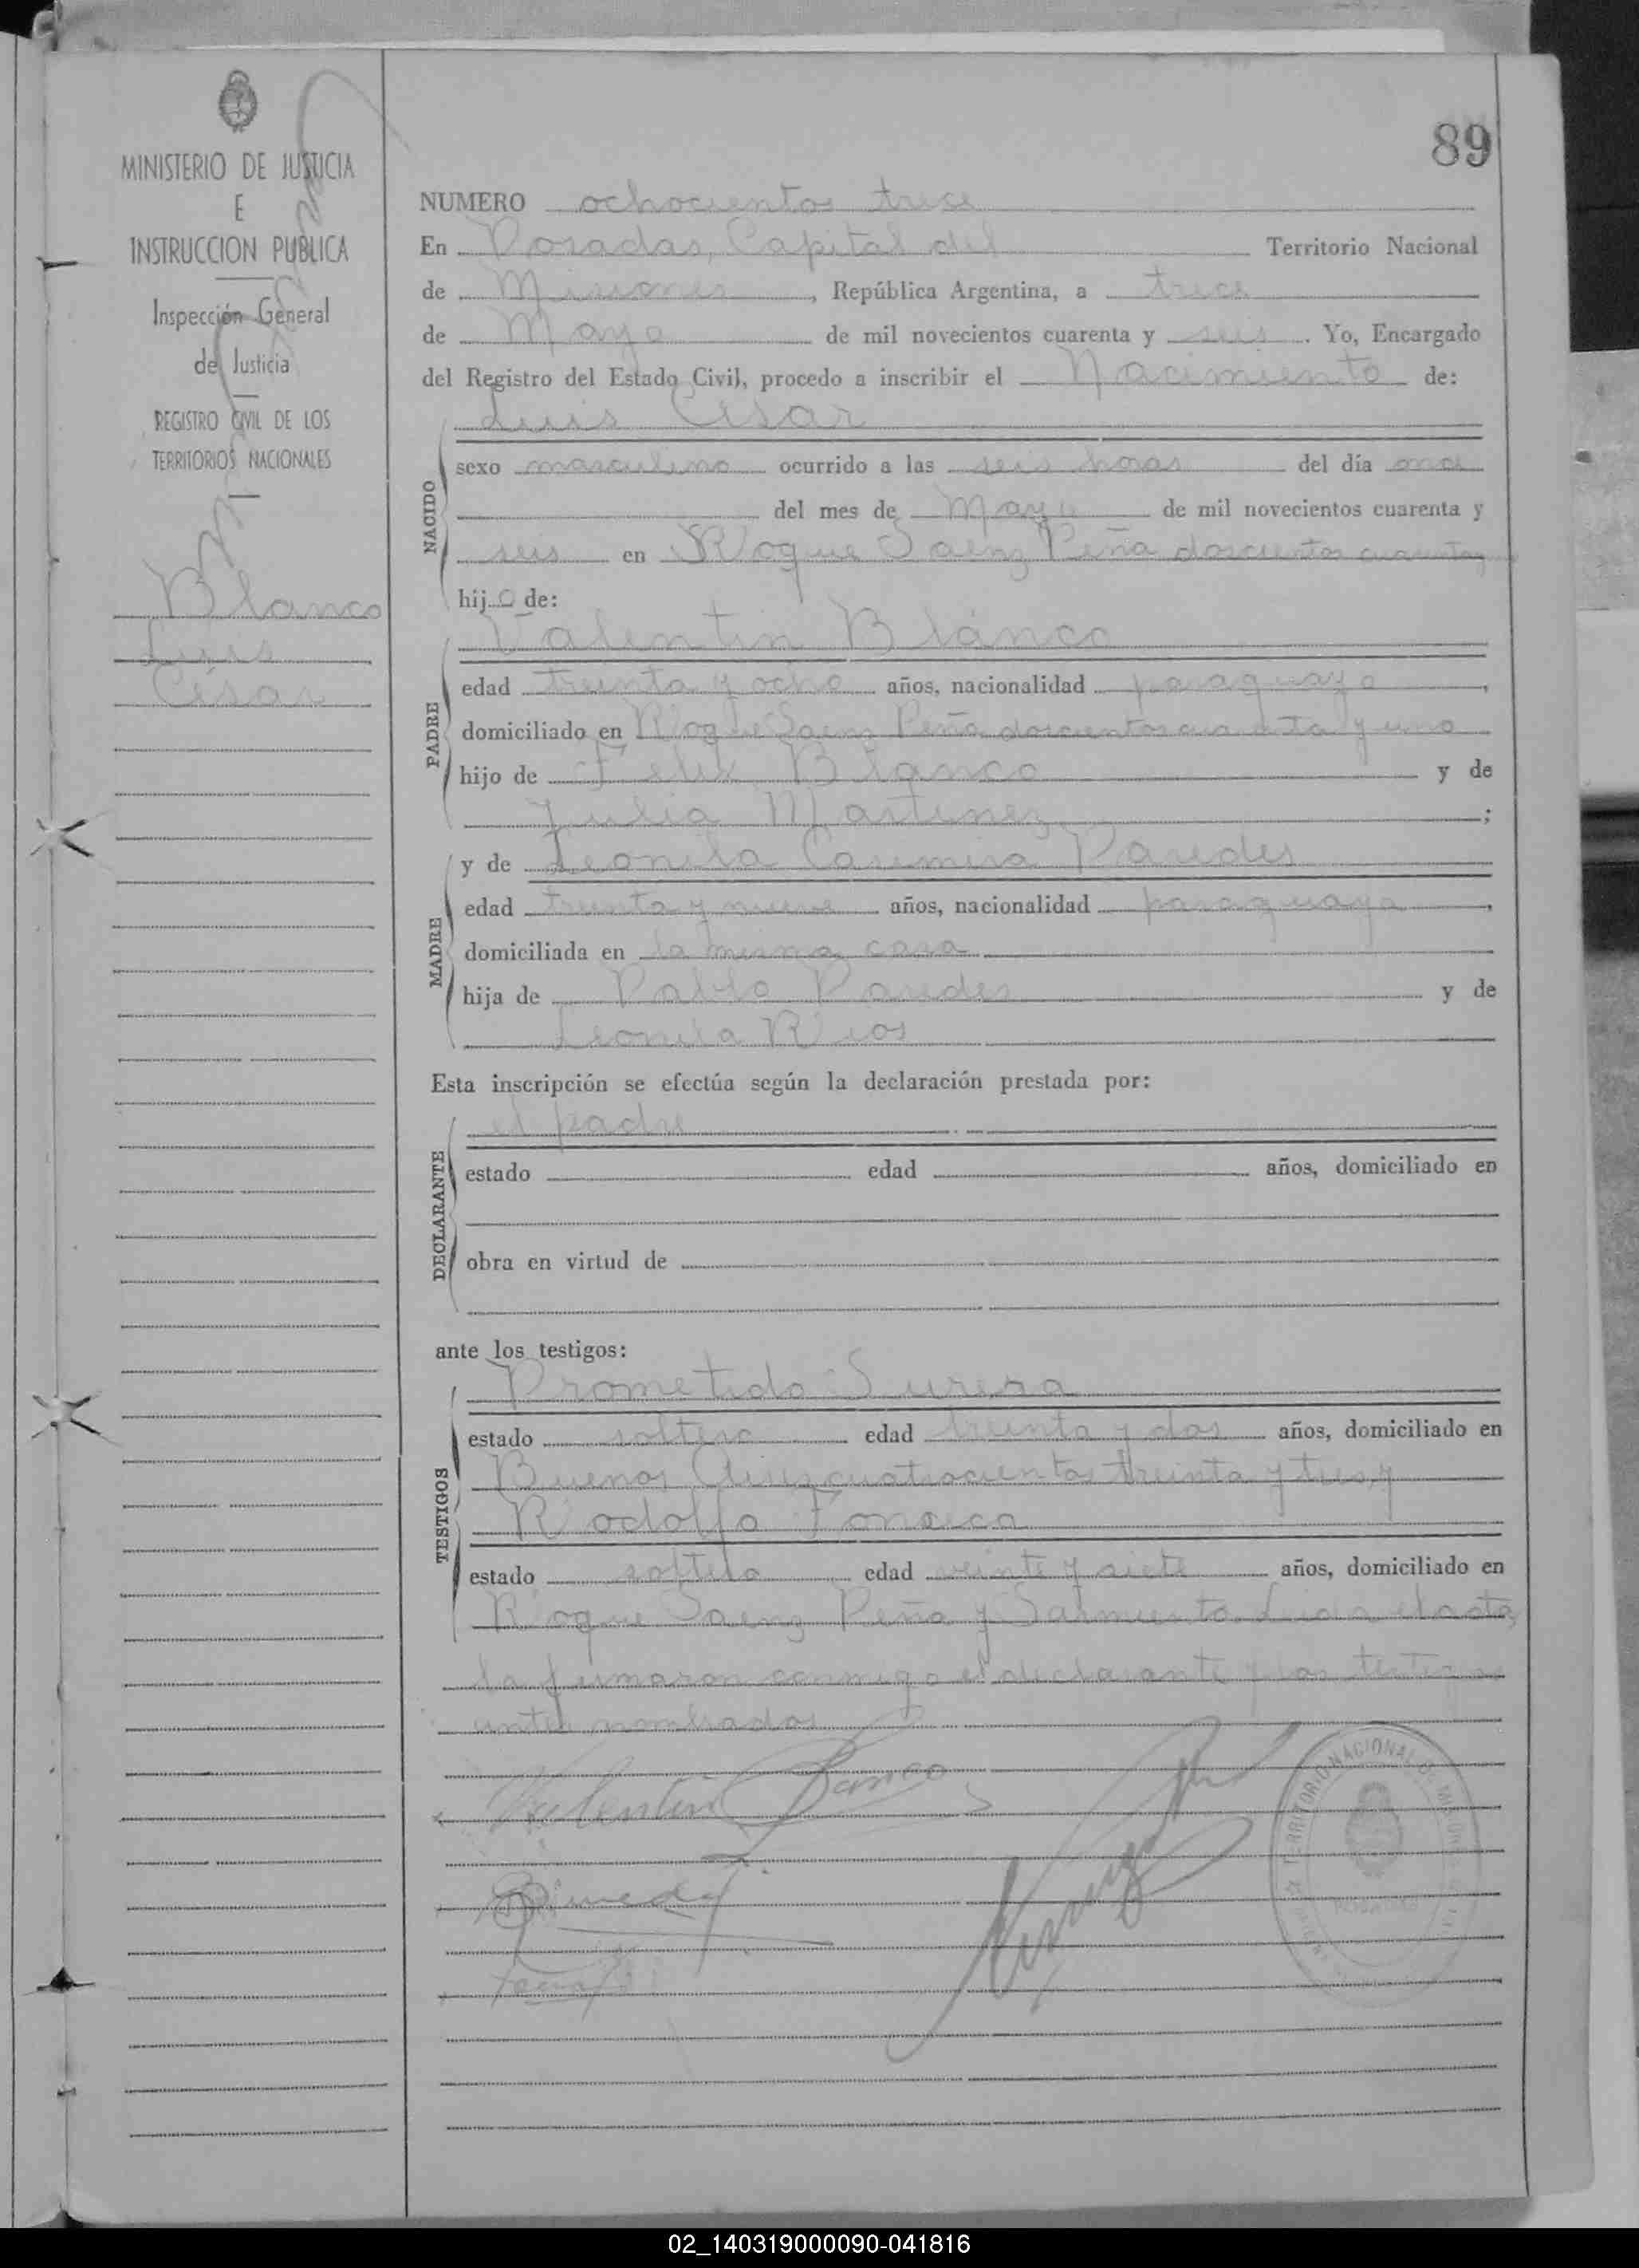 MINISTERIO DE JUSTICIA
E
INSTRUCCION PUBLICA
Inspección General
de Justicia
REGISTRO CIVIL DE LOS
TERRITORIOS NACIONALES
Blanco
Luis
César
89
NUMERO ochocientos trece
En Posadas, Capital del Territorio Nacional
de Misiones, República Argentina, a trece
de Mayo de mil novecientos cuarenta y seis. Yo, Encargado
del Registro del Estado Civil, procedo a inscribir el Nacimiento de:
Luis César
NACIDO
sexo masculino ocurrido a las seis horas del día once
del mes de Mayo de mil novecientos cuarenta y
seis en Roque Saenz Peña doscientos cuarenta y
hijo de:
PADRE
Valentin Blánco
edad treinta y ocho años, nacionalidad paraguayo,
domiciliado en Roque Saenz Peña doscientos cuarenta y uno
hijo de Felix Blanco y de
Julia Martinez;
MADRE
y de Leonila Casimira Paredes
edad treinta y nueve años, nacionalidad paraguaya,
domiciliada en la misma casa
hija de Pablo Paredes y de
Leonila Rios
Esta inscripción se efectúa según la declaración prestada por:
DECLARANTE
el padre
estado edad años, domiciliado en
obra en virtud de
ante los testigos:
TESTIGOS
Prometido
estado soltero edad treinta y dos años, domiciliado en
Buenos Aires cuatrocientos treinta y tres y
Rodolfo Fonseca
estado soltero edad veinte y siete años, domiciliado en
Roque Saenz Peña y Sarmiento. Leida el acta,
la firmaron conmigo el declarante y los testigos
antes nombrados
Valentin Blanco
TERRITORIO NACIONAL DE MISIONES
02_140319000090-041816